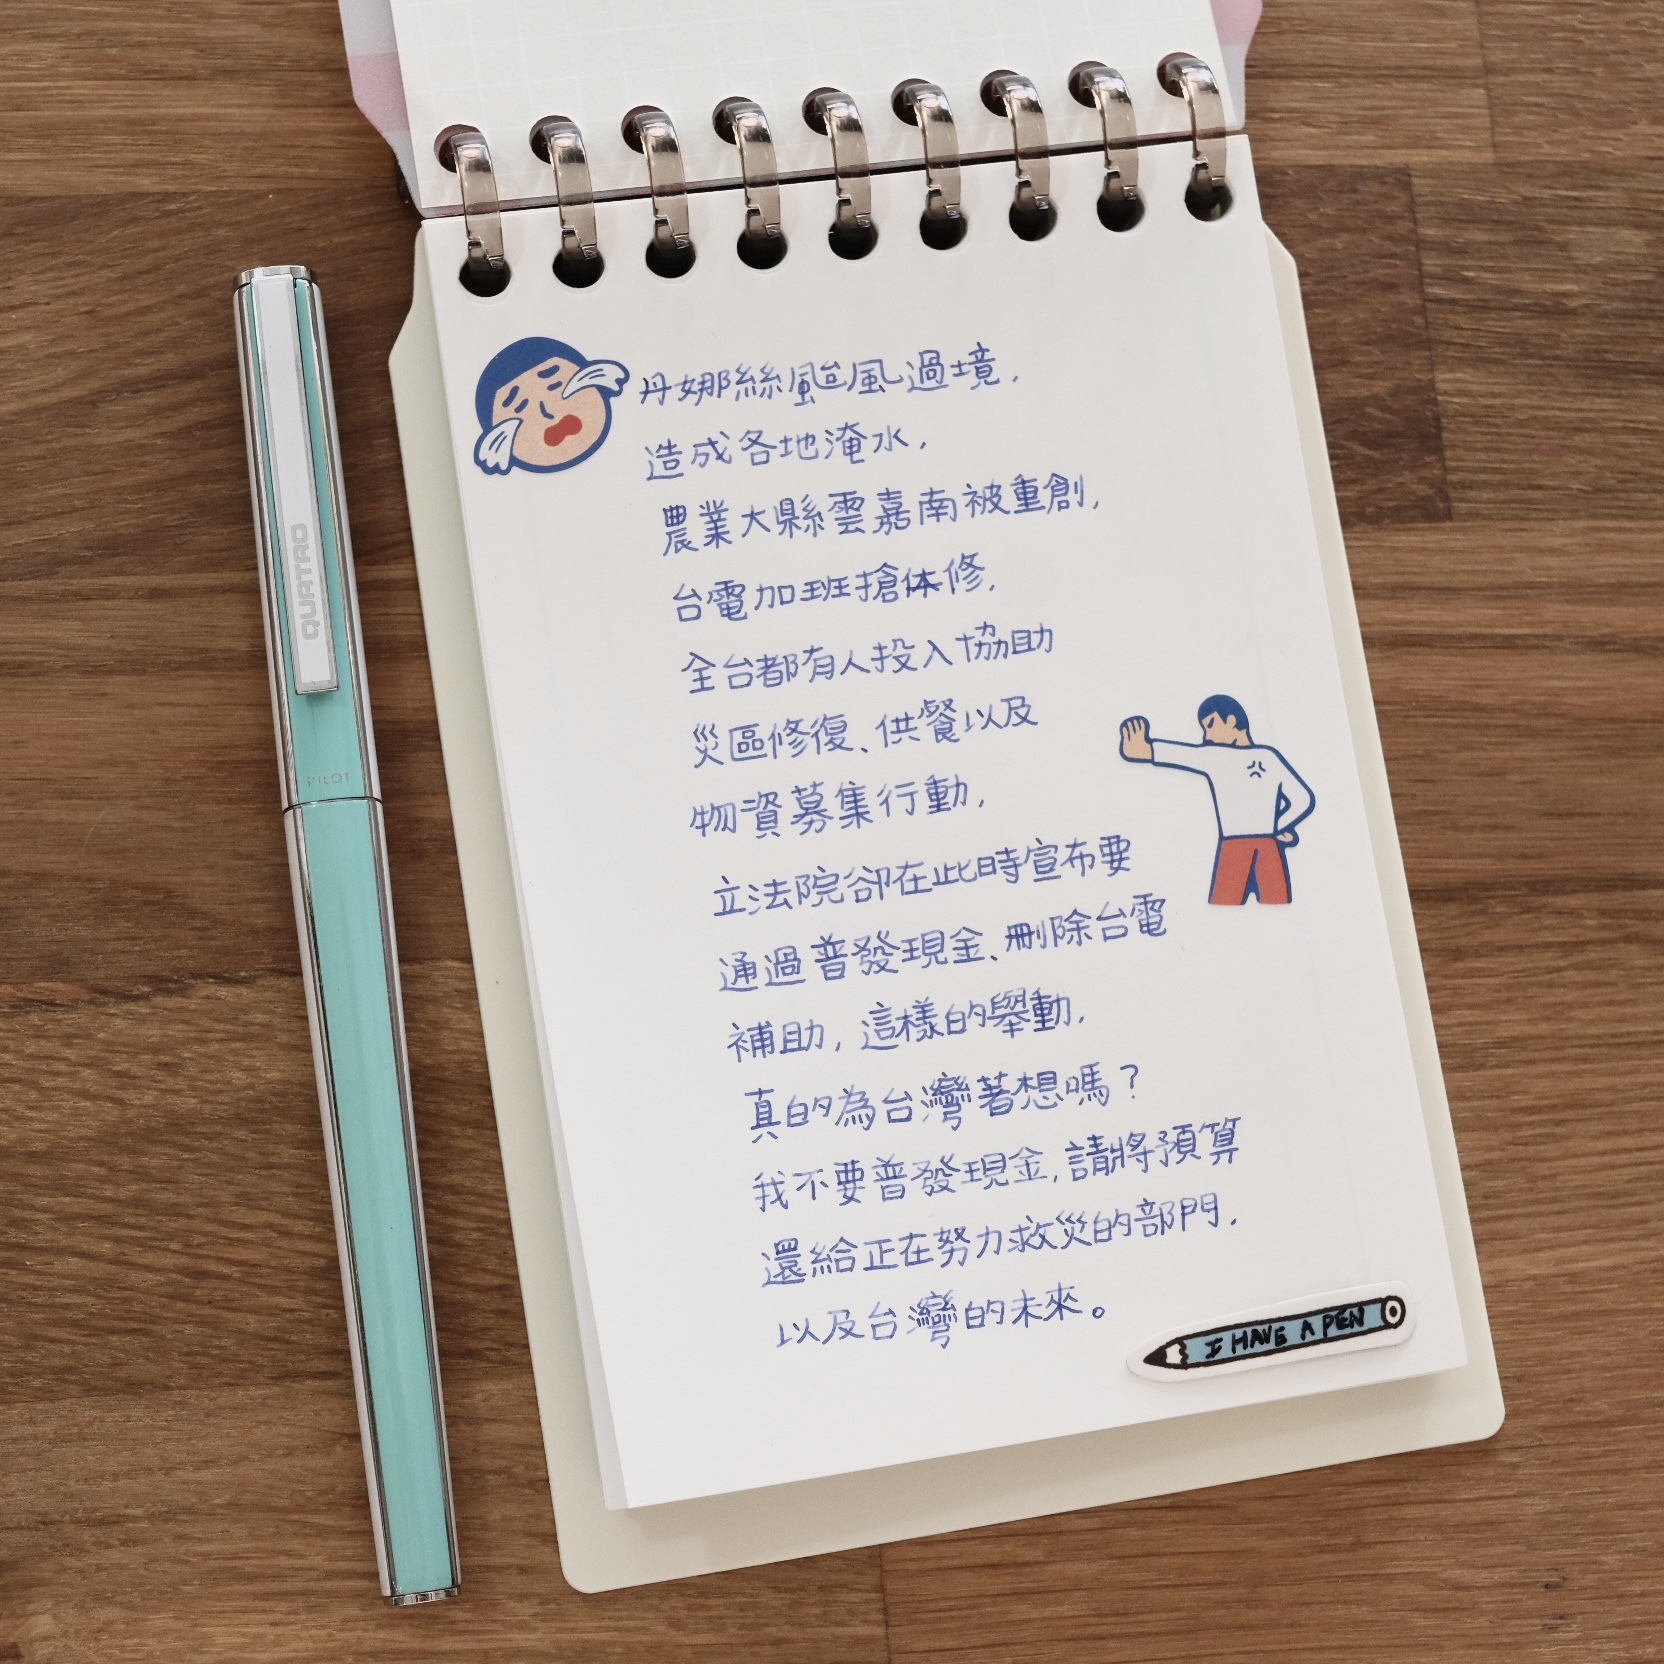 丹娜絲颱風過境,
造成各地淹水,
農業大縣雲嘉南被重創,
台電加班搶休修,
全台都有人投入協助
災區修復、供餐以及
物資募集行動,
立法院卻在此時宣布要
通過普發現金、刪除台電
補助,這樣的舉動,
真的為台灣著想嗎?
我不要普發現金,請將預算
還給正在努力救災的部門,
以及台灣的未來。
I HAVE A PEN
QUATRO
PILOT